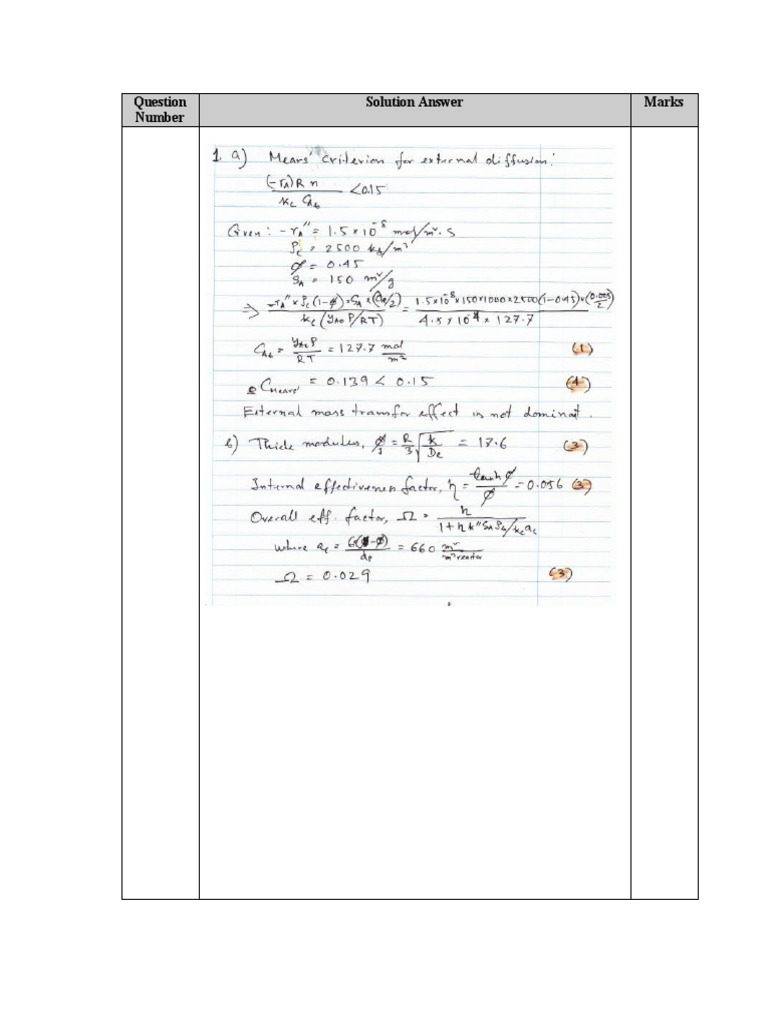 Question Number
Solution Answer
Marks
1. a) Mears' criterion for external diffusion:
(-rA) R n / kc CAb < 0.15
Given: -rA'' = 1.5 × 10^-8 mol/m². s
ρc = 2500 kg/m³
φ = 0.45
SA = 150 m²/g
⇒ -rA'' × ρc (1-φ) × SA × (dp/2) / kc (yA0 P/RT) = 1.5×10^-8×150×1000×2500(1-0.45)×(0.005/2) / 4.5 × 10^-4 × 127.7
CAb = yA0 P / RT = 127.7 mol/m² (1)
CMears' = 0.139 < 0.15 (4)
External mass transfer effect is not dominat.
b) Thiele modules, φ1 = R/3 √(k/De) = 17.6 (3)
Internal effectiveness factor, η = tanh φ / φ = 0.056 (3)
Overall eff. factor, Ω = η / 1 + η k'' SA ρb / kc ac
where ac = 6(1-φ) / dp = 660 m² / m³ reactor
Ω = 0.029 (3)